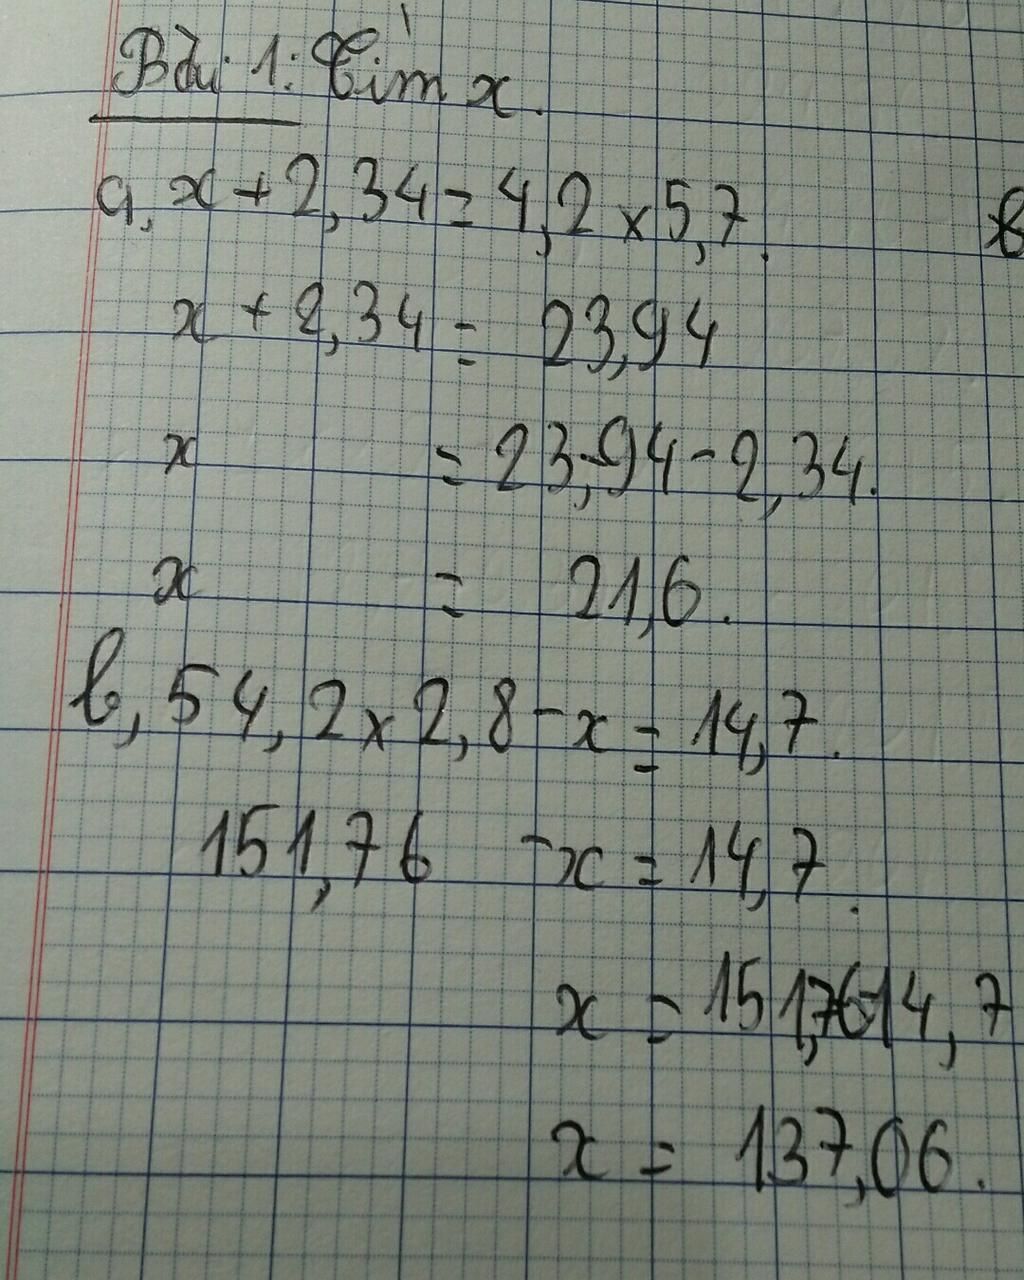 Bài 1: Tìm x.
a, x + 2,34 = 4,2 x 5,7.
x + 2,34 = 23,94
x = 23,94 - 2,34.
x = 21,6.
b, 54,2 x 2,8 - x = 14,7.
151,76 - x = 14,7.
x = 151,76-14,7
x = 137,06.